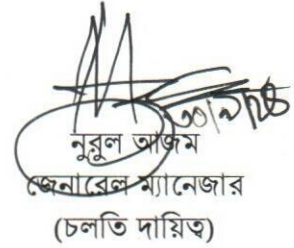 নুরুল আজম
জেনারেল ম্যানেজার
(চলতি দায়িত্ব)